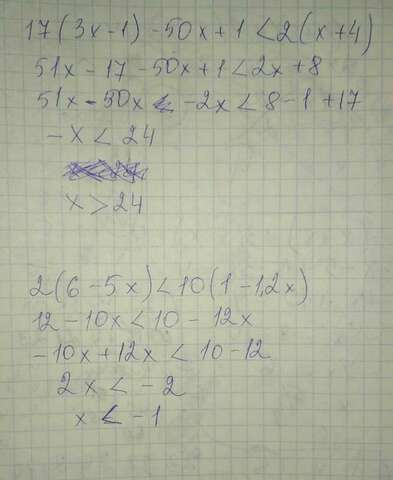 17(3x-1)-50x+1<2(x+4)
51x-17-50x+1<2x+8
51x-50x-2x<8-1+17
-x<24
x>24
2(6-5x)<10(1-1,2x)
12-10x<10-12x
-10x+12x<10-12
2x<-2
x<-1